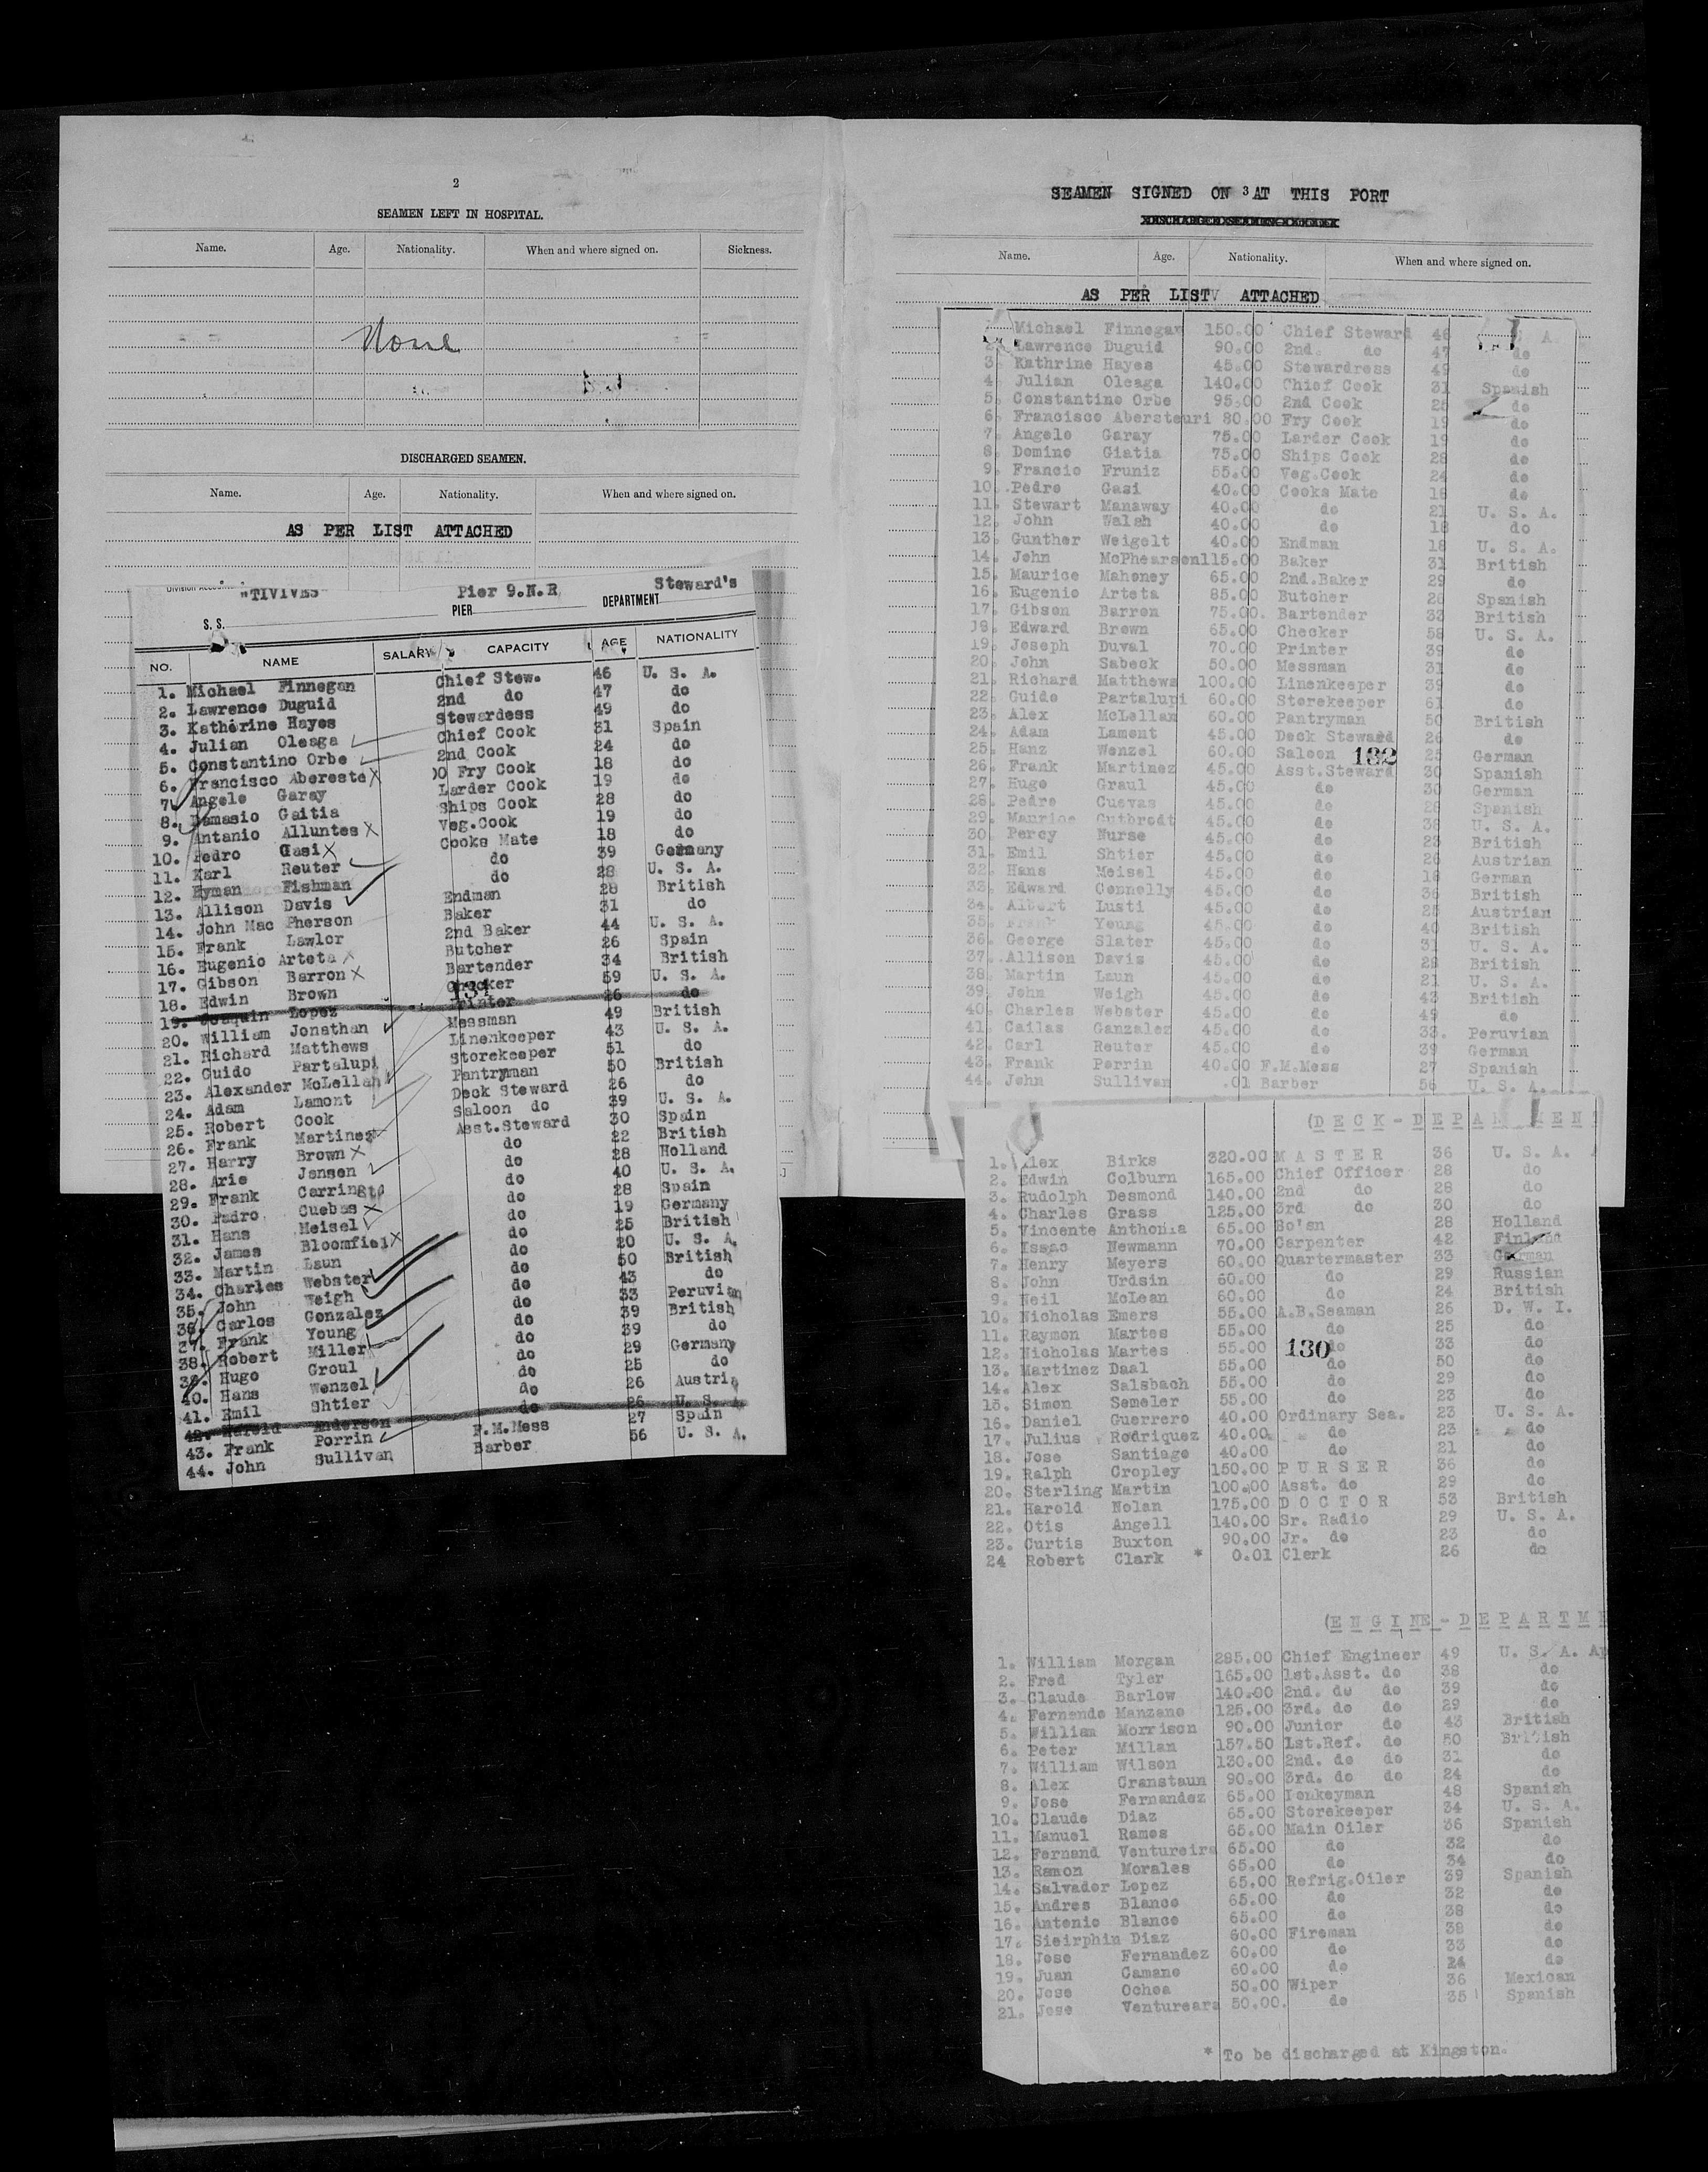 2
SEAMEN LEFT IN HOSPITAL.
Name. Age. Nationality. When and where signed on. Sickness.
None
DISCHARGED SEAMEN.
Name. Age. Nationality. When and where signed on.
AS PER LIST ATTACHED
"TIVIVES" Pier 9.N.R. Steward's
S. S. PIER DEPARTMENT
NO. NAME SALARY CAPACITY AGE NATIONALITY
1. Michael Finnegan Chief Stew. 46 U. S. A.
2. Lawrence Duguid 2nd do 47 do
3. Katherine Hayes Stewardess 49 do
4. Julian Oleaga Chief Cook 31 Spain
5. Constantino Orbe 2nd Cook 24 do
6. Francisco Abereste Fry Cook 18 do
7. Angelo Garay Larder Cook 19 do
8. Damasio Gaitia Ships Cook 28 do
9. Antanio Alluntes Veg.Cook 19 do
10. Pedro Gasi Cooks Mate 18 do
11. Karl Reuter do 39 Germany
12. Hyman Fishman do 28 U. S. A.
13. Allison Davis Endman 28 British
14. John Mac Pherson Baker 31 do
15. Frank Lawlor 2nd Baker 44 U. S. A.
16. Eugenio Arteta Butcher 26 Spain
17. Gibson Barron Bartender 34 British
18. Edwin Brown Checker 59 U. S. A.
131
19. Joaquin Lopez Printer 26 do
20. William Jonathan Messman 49 British
21. Richard Matthews Linenkeeper 43 U. S. A.
22. Guido Partalupi Storekeeper 51 do
23. Alexander McLellan Pantryman 50 British
24. Adam Lamont Deck Steward 26 do
25. Robert Cook Saloon do 39 U. S. A.
26. Frank Martinez Asst.Steward 30 Spain
27. Harry Brown do 22 British
28. Arie Jansen do 28 Holland
29. Frank Carringto do 40 U. S. A.
30. Padro Cuebas do 28 Spain
31. Hans Meisel do 19 Germany
32. James Bloomfiel do 25 British
33. Martin Laun do 20 U. S. A.
34. Charles Webster do 50 British
35. John Weigh do 43 do
36. Carlos Gonzalez do 33 Peruvian
37. Frank Young do 39 British
38. Robert Miller do 39 do
39. Hugo Groul do 29 Germany
40. Hans Wenzel do 25 do
41. Emil Shtier do 26 Austria
42. Harold Anderson do 26 U. S. A.
43. Frank Porrin F.M.Mess 27 Spain
44. John Sullivan Barber 56 U. S. A.
SEAMEN SIGNED ON 3 AT THIS PORT
Name. Age. Nationality. When and where signed on.
AS PER LIST ATTACHED
Michael Finnegan 150.00 Chief Steward 46 S. A.
Lawrence Duguid 90.00 2nd. do 47 do
3. Kathrine Hayes 45.00 Stewardress 49 do
4. Julian Oleaga 140.00 Chief Cook 31 Spanish
5. Constantino Orbe 95.00 2nd Cook 25 do
6. Francisco Abersteuri 80.00 Fry Cook 19 do
7. Angelo Garay 75.00 Larder Cook 19 do
8. Domino Giatia 75.00 Ships Cook 28 do
9. Francio Fruniz 55.00 Veg.Cook 24 do
10. Pedro Gasi 40.00 Cooks Mate 18 do
11. Stewart Manaway 40.00 do 21 U. S. A.
12. John Walsh 40.00 do 18 do
13. Gunther Weigelt 40.00 Endman 18 U. S. A.
14. John McPhearson 115.00 Baker 31 British
15. Maurice Mahoney 65.00 2nd.Baker 29 do
16. Eugenio Arteta 85.00 Butcher 26 Spanish
17. Gibson Barron 75.00. Bartender 33 British
18. Edward Brown 65.00 Checker 58 U. S. A.
19. Joseph Duval 70.00 Printer 39 do
20. John Sabeck 50.00 Messman 31 do
21. Richard Matthews 100.00 Linenkeeper 39 do
22. Guido Partalupi 60.00 Storekeeper 61 do
23. Alex McLellan 60.00 Pantryman 50 British
24. Adam Lamont 45.00 Deck Steward 26 do
25. Hanz Wenzel 60.00 Saloon 25 German
132
26. Frank Martinez 45.00 Asst.Steward 30 Spanish
27. Hugo Graul 45.00 do 30 German
28. Pedro Cuevas 45.00 do 28 Spanish
29. Maurice Gutbrodt 45.00 do 38 U. S. A.
30. Percy Nurse 45.00 do 23 British
31. Emil Shtier 45.00 do 26 Austrian
32. Hans Meisel 45.00 do 18 German
33. Edward Connelly 45.00 do 36 British
34. Albert Lusti 45.00 do 25 Austrian
35. Frank Young 45.00 do 40 British
36. George Slater 45.00 do 31 U. S. A.
37. Allison Davis 45.00 do 28 British
38. Martin Laun 45.00 do 21 U. S. A.
39. John Weigh 45.00 do 43 British
40. Charles Webster 45.00 do 49 do
41. Cailas Ganzalez 45.00 do 33. Peruvian
42. Carl Reuter 45.00 do 39 German
43. Frank Perrin 40.00 F.M.Mess 27 Spanish
44. John Sullivan .01 Barber 56 U. S. A.
(DECK-DEPARTMEN
1. Alex Birks 320.00 MASTER 36 U. S. A.
2. Edwin Colburn 165.00 Chief Officer 28 do
3. Rudolph Desmond 140.00 2nd do 28 do
4. Charles Grass 125.00 3rd do 30 do
5. Vincente Anthonia 65.00 Bo'sn 28 Holland
6. Issac Newmann 70.00 Carpenter 42 Finland
7. Henry Meyers 60.00 Quartermaster 33 German
8. John Urdsin 60.00 do 29 Russian
9. Neil McLean 60.00 do 24 British
10. Nicholas Emers 55.00 A.B.Seaman 26 D. W. I.
11. Raymon Martes 55.00 do 25 do
12. Nicholas Martes 55.00 do 33 do
130
13. Martinez Daal 55.00 do 50 do
14. Alex Salsbach 55.00 do 29 do
15. Simon Semeler 55.00 do 23 do
16. Daniel Guerrero 40.00 Ordinary Sea. 23 U. S. A.
17. Julius Rodriquez 40.00 do 23 do
18. Jose Santiago 40.00 do 21 do
19. Ralph Cropley 150.00 PURSER 36 do
20. Sterling Martin 100.00 Asst. do 29 do
21. Harold Nolan 175.00 DOCTOR 53 British
22. Otis Angell 140.00 Sr. Radio 29 U. S. A.
23. Curtis Buxton 90.00 Jr. do 23 do
24 Robert Clark * 0.01 Clerk 26 do
(ENGINE-DEPARTME
1. William Morgan 285.00 Chief Engineer 49 U. S. A. Ap
2. Fred Tyler 165.00 1st.Asst. do 38 do
3. Claude Barlow 140.00 2nd. do do 39 do
4. Fernando Manzano 125.00 3rd. do do 29 do
5. William Morrison 90.00 Junior do 43 British
6. Peter Millan 157.50 1st.Ref. do 50 British
7. William Wilson 130.00 2nd. do do 31 do
8. Alex Cranstaun 90.00 3rd. do do 24 do
9. Jose Fernandez 65.00 Donkeyman 48 Spanish
10. Claude Diaz 65.00 Storekeeper 34 U. S. A.
11. Manuel Rames 65.00 Main Oiler 36 Spanish
12. Fernand Ventureira 65.00 do 32 do
13. Ramon Morales 65.00 do 34 do
14. Salvador Lopez 65.00 Refrig.Oiler 39 Spanish
15. Andres Blanco 65.00 do 32 do
16. Antonio Blanco 65.00 do 38 do
17. Sieirphin Diaz 60.00 Fireman 38 do
18. Jose Fernandez 60.00 do 33 do
19. Juan Camano 60.00 do 24 do
20. Jose Ochoa 50.00 Wiper 36 Mexican
21. Jose Ventureara 50.00. do 35 Spanish
* To be discharged at Kingston.